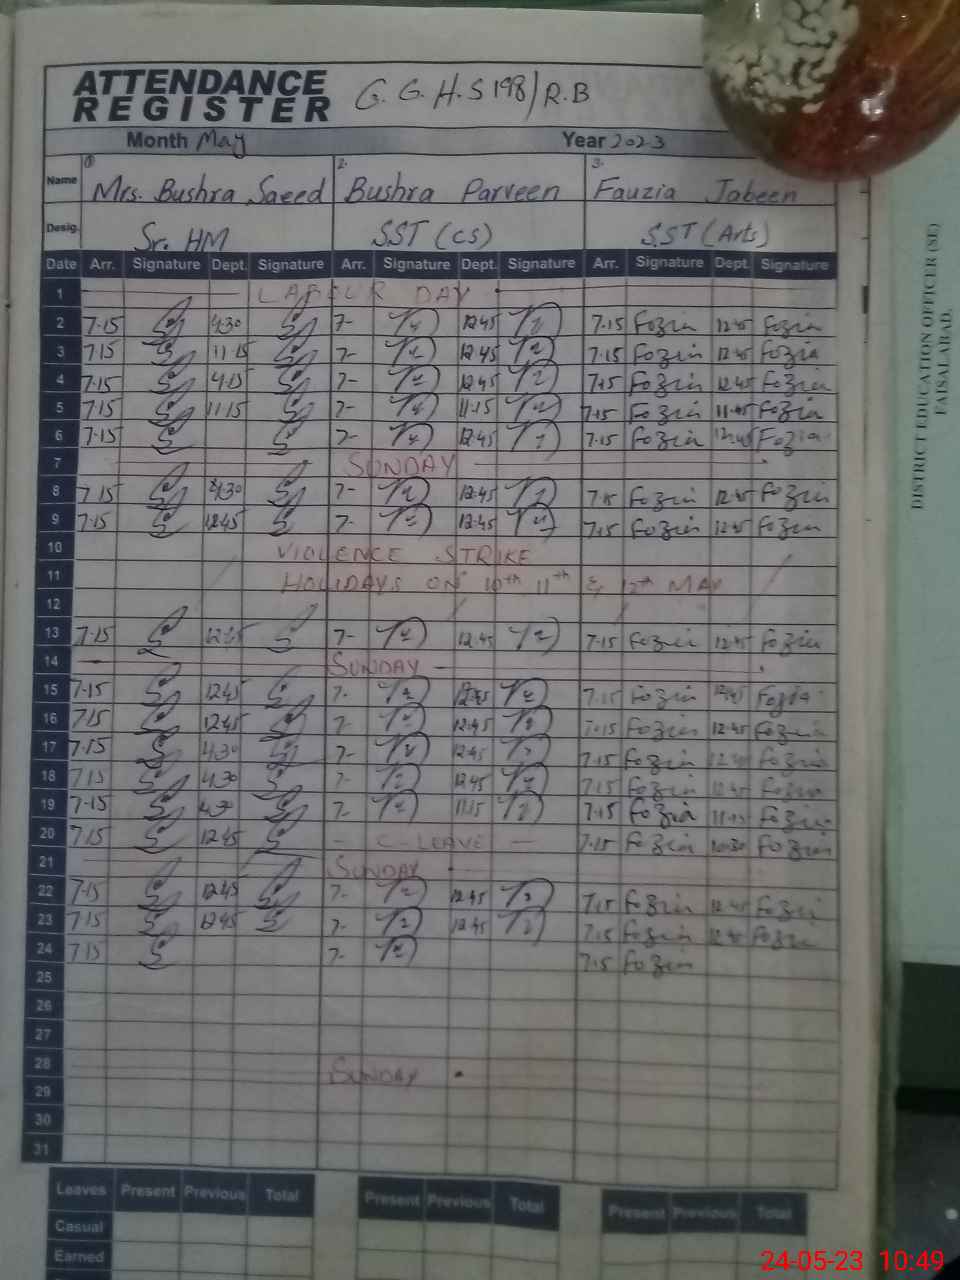 ATTENDANCE
REGISTER G.G.H.S 198/R.B
Month May Year 2023
Name 1 Mrs. Bushra Saeed 2. Bushra Parveen 3. Fauzia Jabeen
Desig. Sr. HM SST (CS) SST (Arts)
Date Arr. Signature Dept. Signature Arr. Signature Dept. Signature Arr. Signature Dept. Signature
1 LABOUR DAY
2 7-15 4:30 7- 12:45 7.15 Fozia 12:45 Fozia
3 7.15 11-15 7- 12:45 7.15 Fozia 12:45 Fozia
4 7.15 4.15 7- 12:45 7.15 Fozia 12:45 Fozia
5 7.15 11.15 7- 11-15 7.15 Fozia Fozia
6 7-15 7- 12:45 7.15 Fozia 12:45 Fozia
7 SUNDAY
8 7-15 4:30 7- 12:45 7.15 Fozia 12:45 Fozia
9 7-15 12:45 7- 12:45 7.15 Fozia 12:45 Fozia
10 VIOLENCE STRIKE
11 HOLIDAYS ON 10th 11th & 12th MAY
12
13 7-15 7- 12:45 7-15 Fozia 12:45 Fozia
14 SUNDAY
15 7-15 12.45 7- 12:45 7.15 Fozia 12:45 Fozia
16 7.15 12.45 7- 12:45 7.15 Fozia 12:45 Fozia
17 7-15 4.30 7- 12:45 7.15 Fozia Fozia
18 7.15 4.30 7- 12:45 7.15 Fozia 12:45 Fozia
19 7-15 7- 11:15 7-15 Fozia 11.15 Fozia
20 7.15 12.45 - C-LEAVE - 7-15 Fozia 10:30 Fozia
21 SUNDAY
22 7-15 12.45 7- 12.45 7.15 Fozia 12:45 Fozia
23 7.15 12.45 7- 12.45 7.15 Fozia Fozia
24 7.15 7- 7.15 Fozia
25
26
27
28 SUNDAY
29
30
31
Leaves Present Previous Total Present Previous Total Present Previous Total
Casual
Earned
DISTRICT EDUCATION OFFICER (SE)
FAISALABAD.
24-05-23 10:49